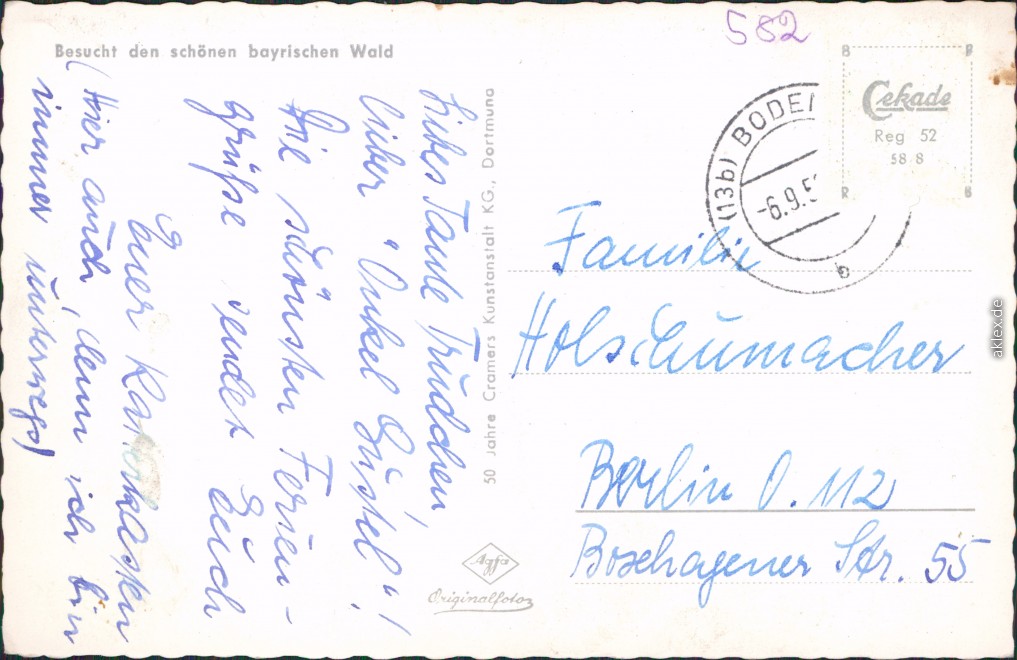 582
Besucht den schönen bayrischen Wald
Cekade
Reg 52
58 8
(13b) BODEN
-6.9.5
b
Liebes Tante Trudchen,
lieber "Onkel Güstel"!
Die schönsten Ferien-
grüße sendet Euch
Euer Karl
(Hier auch, denn ich bin
immer unterwegs)
50 Jahre Cramers Kunstanstalt KG., Dortmund
Agfa
Originalfoto
Familie
Holschumacher
Berlin O. 112
Boxhagener Str. 55
aklex.de